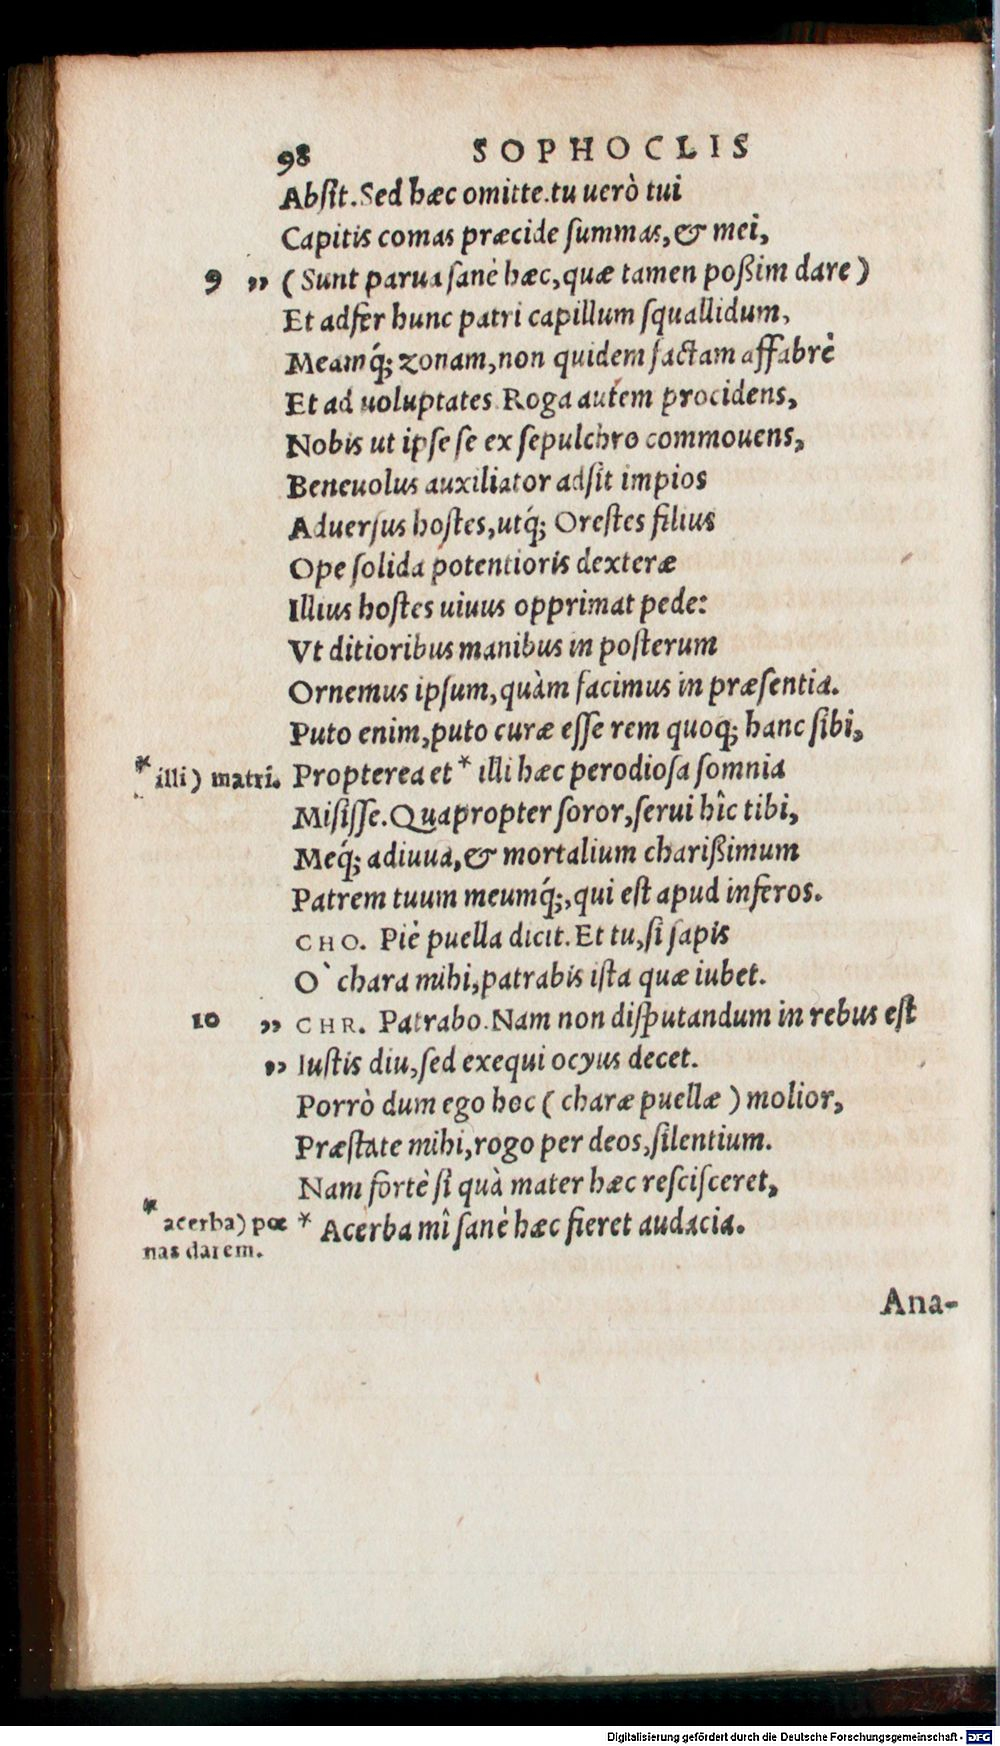 98 SOPHOCLIS
Absit. Sed hæc omitte. tu uerò tui
Capitis comas præcide summas, & mei,
9 „ (Sunt parua sanè hæc, quæ tamen poßim dare)
Et adfer hunc patri capillum squallidum,
Meamq́; zonam, non quidem factam affabrè
Et ad uoluptates. Roga autem procidens,
Nobis ut ipse se ex sepulchro commouens,
Beneuolus auxiliator adsit impios
Aduersus hostes, utq́; Orestes filius
Ope solida potentioris dexteræ
Illius hostes uiuus opprimat pede:
Vt ditioribus manibus in posterum
Ornemus ipsum, quàm facimus in præsentia.
Puto enim, puto curæ esse rem quoq; hanc sibi,
* illi) matri. Propterea et * illi hæc perodiosa somnia
Misisse. Quapropter soror, serui hîc tibi,
Meq́; adiuua, & mortalium charißimum
Patrem tuum meumq́;, qui est apud inferos.
CHO. Piè puella dicit. Et tu, si sapis
O` chara mihi, patrabis ista quæ iubet.
10 „ CHR. Patrabo. Nam non disputandum in rebus est
„ Iustis diu, sed exequi ocyus decet.
Porrò dum ego hoc (charæ puellæ) molior,
Præstate mihi, rogo per deos, silentium.
Nam fortè si quà mater hæc rescisceret,
* acerba) pœ * Acerba mî sanè hæc fieret audacia.
nas darem.
Ana-
Digitalisierung gefördert durch die Deutsche Forschungsgemeinschaft - DFG